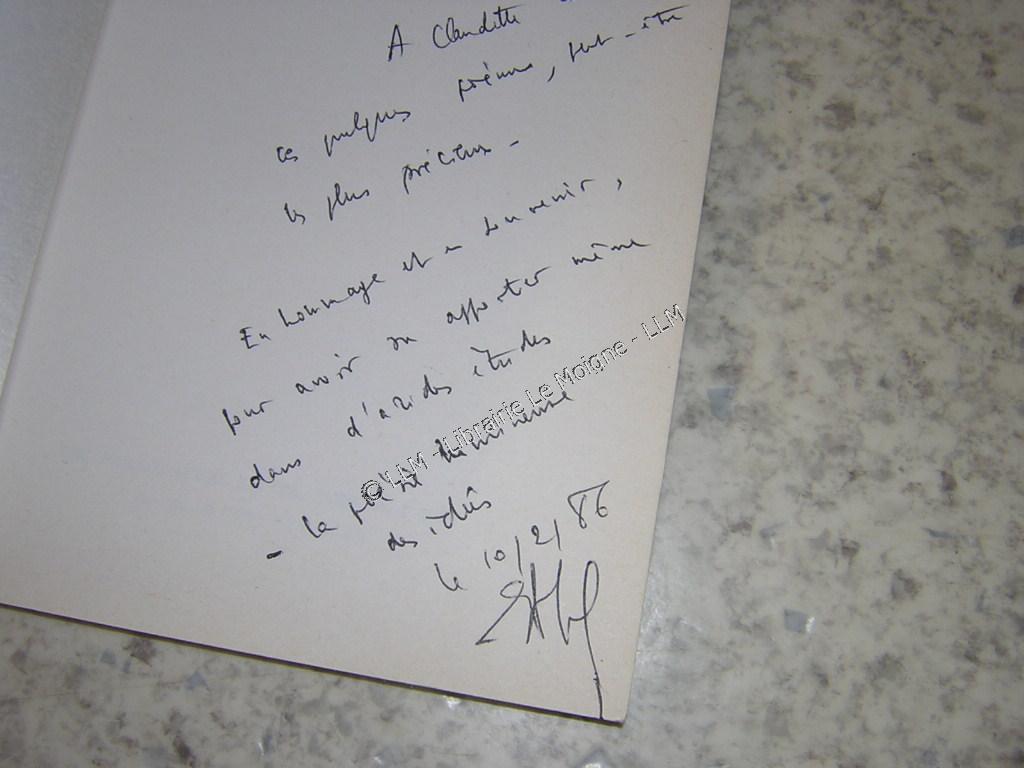 A Claudette
ces quelques poèmes, peut-être
les plus précieux -
En hommage et en souvenir,
pour avoir su apporter même
dans d'arides études
- la poésie
des idées
le 10/2/86
© LLM - Librairie Le Moigne - LLM